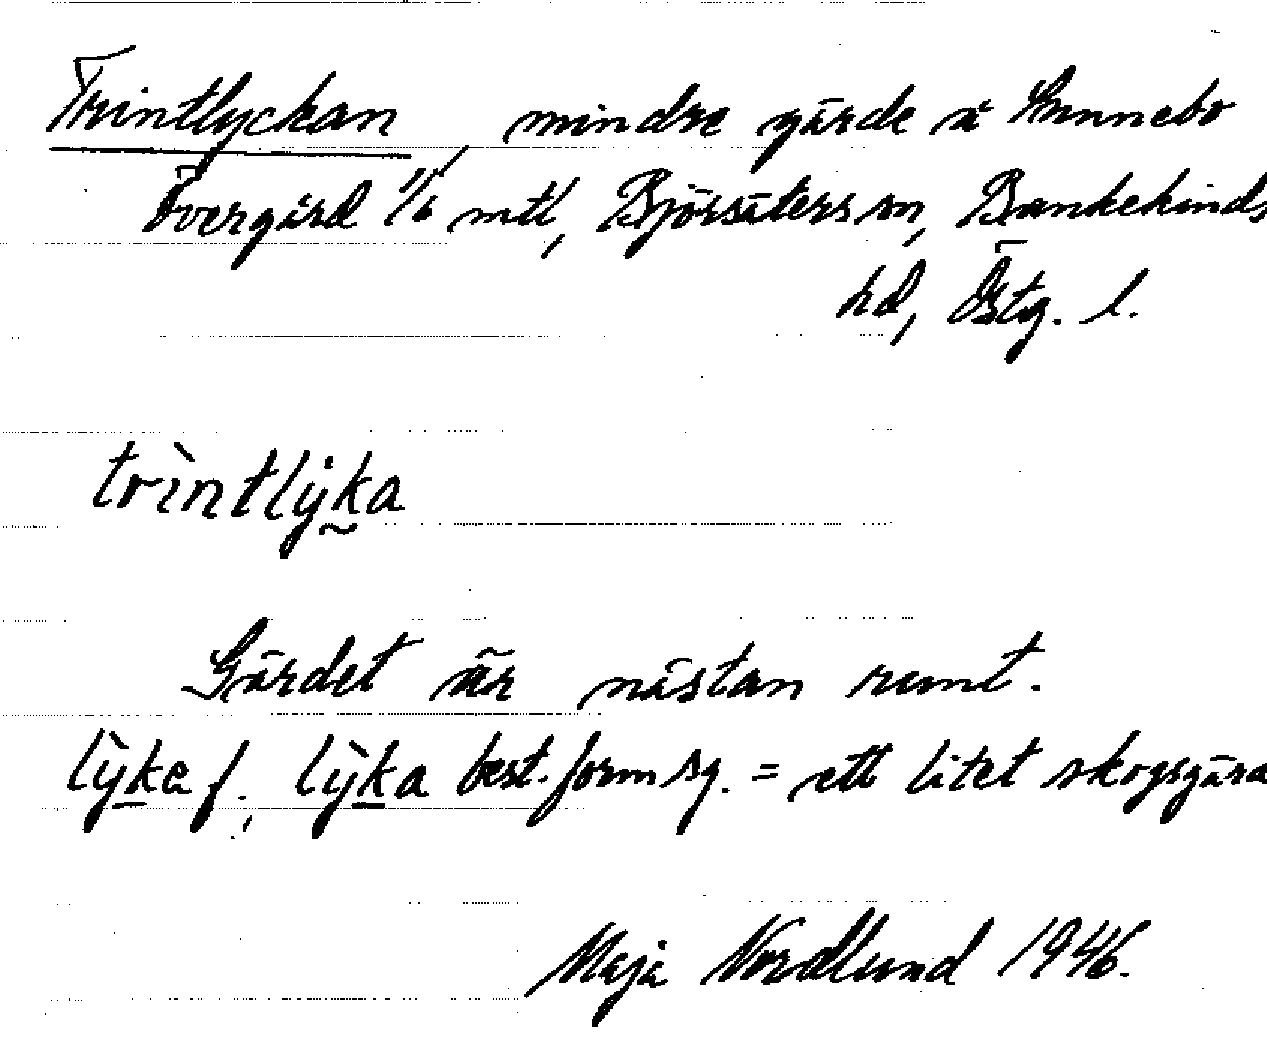 Trintlyckan, mindre gärde å Sunnebo
Övergård 1/6 mtl, Björsäters sn, Bankekinds
hd, Östg. l.
trìntlẏka
Gärdet är nästan runt.
lỳke f., lỳka best. form sg. = ett litet skogsgärd
Maja Nordlund 1946.